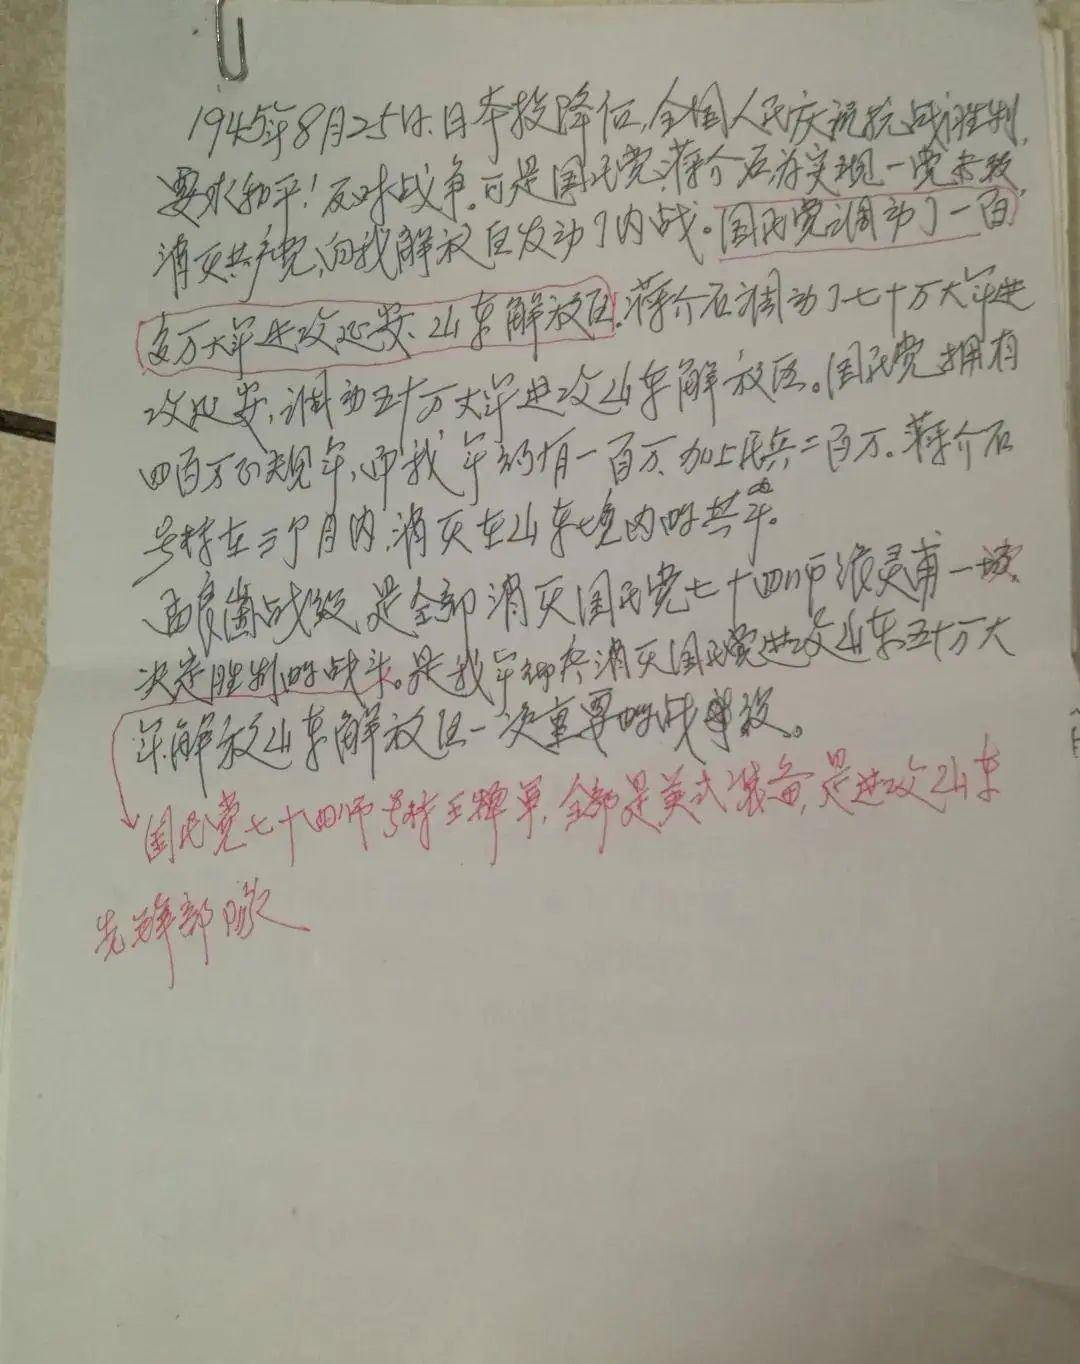 1945年8月25日、日本投降后,全国人民庆祝抗战胜利,
要求和平!反对战争。可是国民党、蒋介石为实现一党专政,
消灭共产党,向我解放区发动了内战。国民党调动了一百
多万大军进攻延安、山东解放区。蒋介石调动了七十万大军进
攻延安,调动五十万大军进攻山东解放区。国民党拥有
四百万正规军,而我军约有一百万,加上民兵二百万。蒋介石
号称在三个月内,消灭在山东境内的共军。
孟良崮战役,是全部消灭国民党七十四师张灵甫一场
决定胜利的战斗。是我军彻底消灭国民党进攻山东五十万大
军,解放山东解放区一次重要的战役。
国民党七十四师号称王牌军,全部是美式装备,是进攻山东
先锋部队